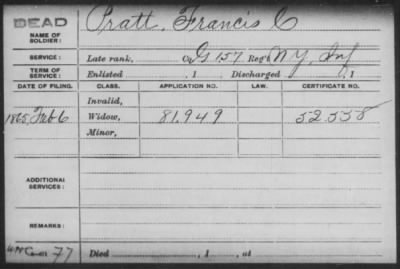 DEAD
Pratt, Francis C
NAME OF SOLDIER:
SERVICE: Late rank, Co G 157 Reg't N Y Inf
TERM OF SERVICE: Enlisted , 1 , Discharged , 1
DATE OF FILING. CLASS. APPLICATION NO. LAW. CERTIFICATE NO.
Invalid,
1865 Feb 6 Widow, 81.949 52.558
Minor,
ADDITIONAL SERVICES:
REMARKS:
77 Died , 1 , at